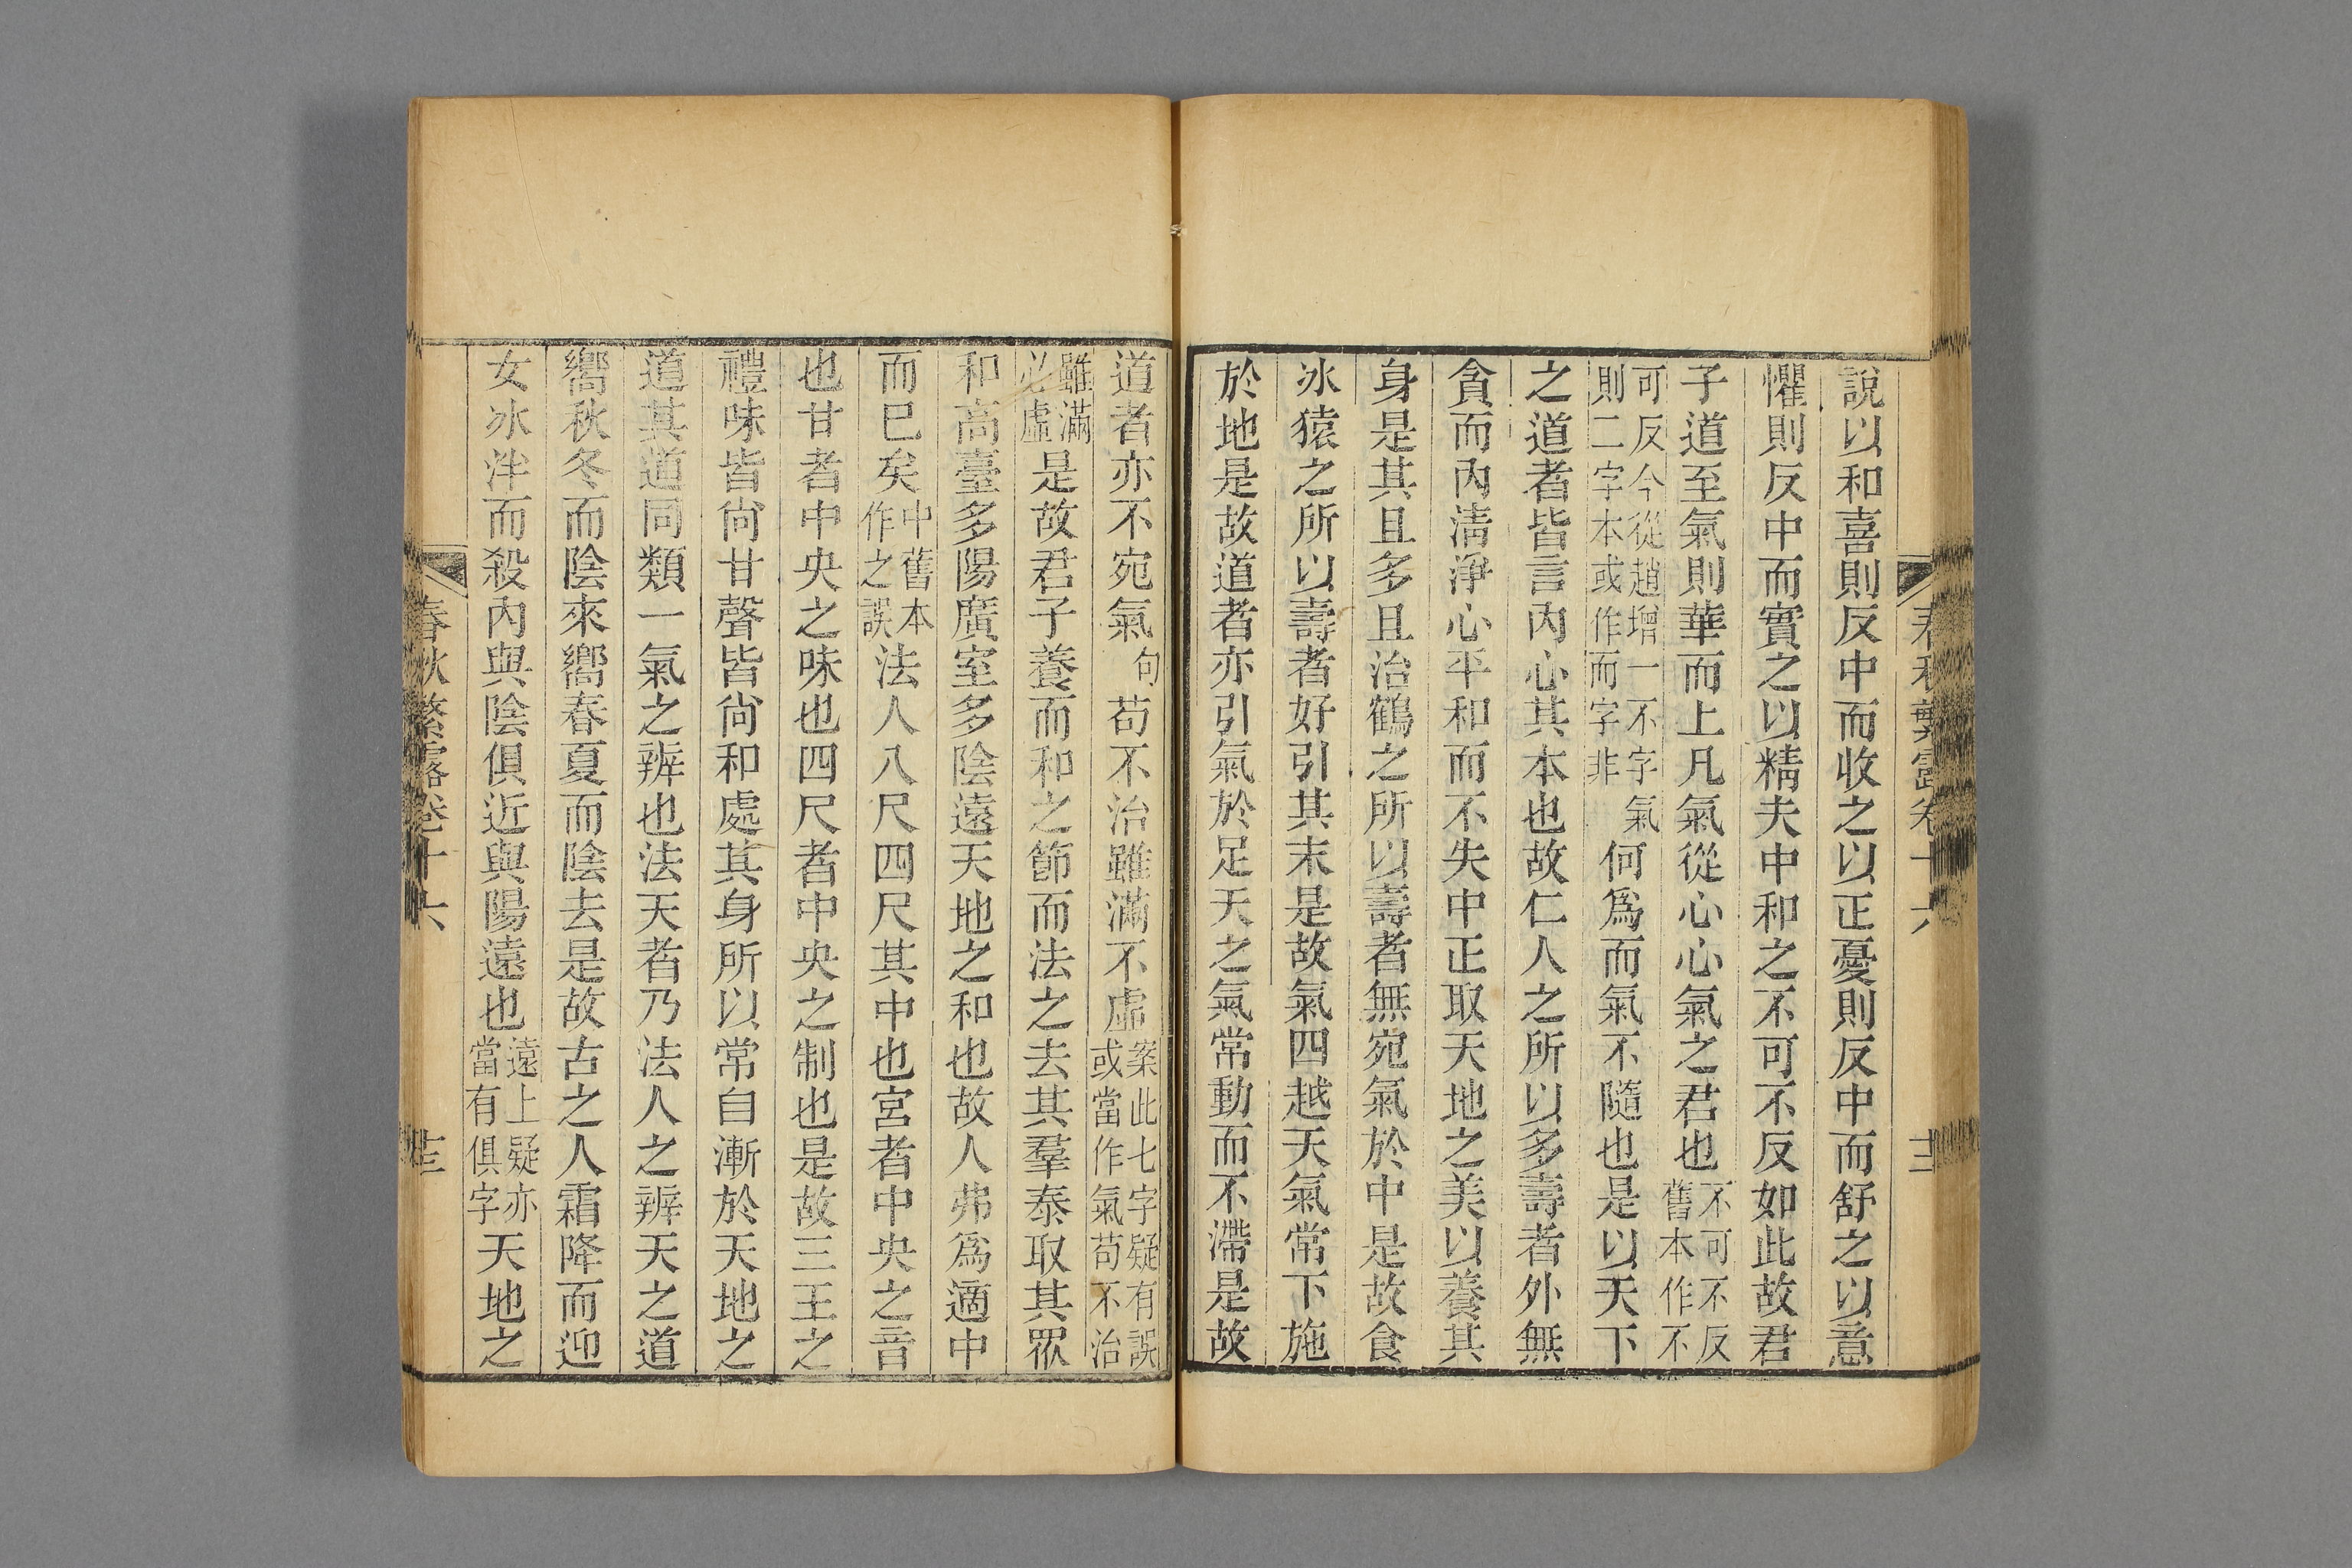 春秋繁露卷十六 十二
說以和喜則反中而收之以正憂則反中而舒之以意
懼則反中而實之以精夫中和之不可不反如此故君
子道至氣則華而上凡氣從心心氣之君也不可不反舊本作不
可反今從趙增一不字氣則二字本或作而字非何爲而氣不隨也是以天下
之道者皆言內心其本也故仁人之所以多壽者外無
貪而內清淨心平和而不失中正取天地之美以養其
身是其且多且治鶴之所以壽者無宛氣於中是故食
冰猿之所以壽者好引其末是故氣四越天氣常下施
於地是故道者亦引氣於足天之氣常動而不滯是故
道者亦不宛氣句苟不治雖滿不虛案此七字疑有誤或當作氣苟不治
雖滿必虛是故君子養而和之節而法之去其羣泰取其眾
和高臺多陽廣室多陰遠天地之和也故人弗爲適中
而已矣中舊本作之誤法人八尺四尺其中也宮者中央之音
也甘者中央之味也四尺者中央之制也是故三王之
禮味皆尙甘聲皆尙和處其身所以常自漸於天地之
道其道同類一氣之辨也法天者乃法人之辨天之道
嚮秋冬而陰來嚮春夏而陰去是故古之人霜降而迎
女冰泮而殺內與陰俱近與陽遠也遠上疑亦當有俱字天地之
春秋繁露卷十六 十三